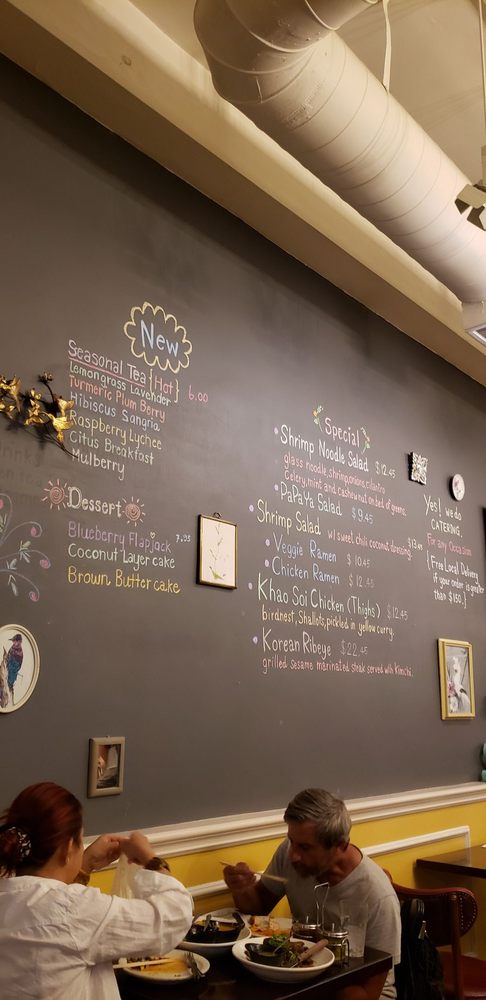 New
Seasonal Tea {Hot} 6.00
Lemongrass Lavender
Turmeric Plum Berry
Hibiscus Sangria
Raspberry Lychee
Citus Breakfast
Mulberry
Dessert
Blueberry Flapjack 7.95
Coconut Layer cake
Brown Butter cake
Special
Shrimp Noodle Salad $12.45
glass noodle, shrimp, onions, cilantro
Celery, mint and cashew nut on bed of greens.
PaPaya Salad $9.45
Shrimp Salad w/ sweet chili coconut dressing $13.45
Veggie Ramen $10.45
Chicken Ramen $12.45
Khao Soi Chicken (Thighs) $12.45
birdnest, Shallots, pickled in yellow curry.
Korean Ribeye $22.45
grilled sesame marinated steak served with Kimchi.
Yes! we do
CATERING.
For any Occasion
{Free Local Delivery
if your order is greater
than $150.}